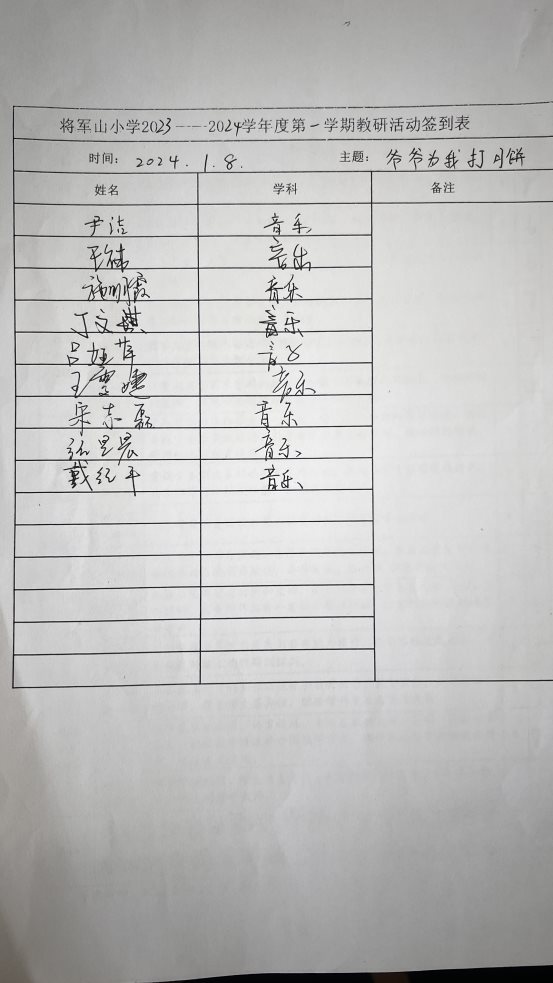 将军山小学2023——-2024学年度第一学期教研活动签到表
时间： 2024.1.8. 主题： 爷爷为我打月饼
姓名 学科 备注
尹洁 音乐
音乐
音乐
丁文 音乐
吕 音乐
王雯婕 音乐
宋东磊 音乐
张星晨 音乐
戴红平 音乐